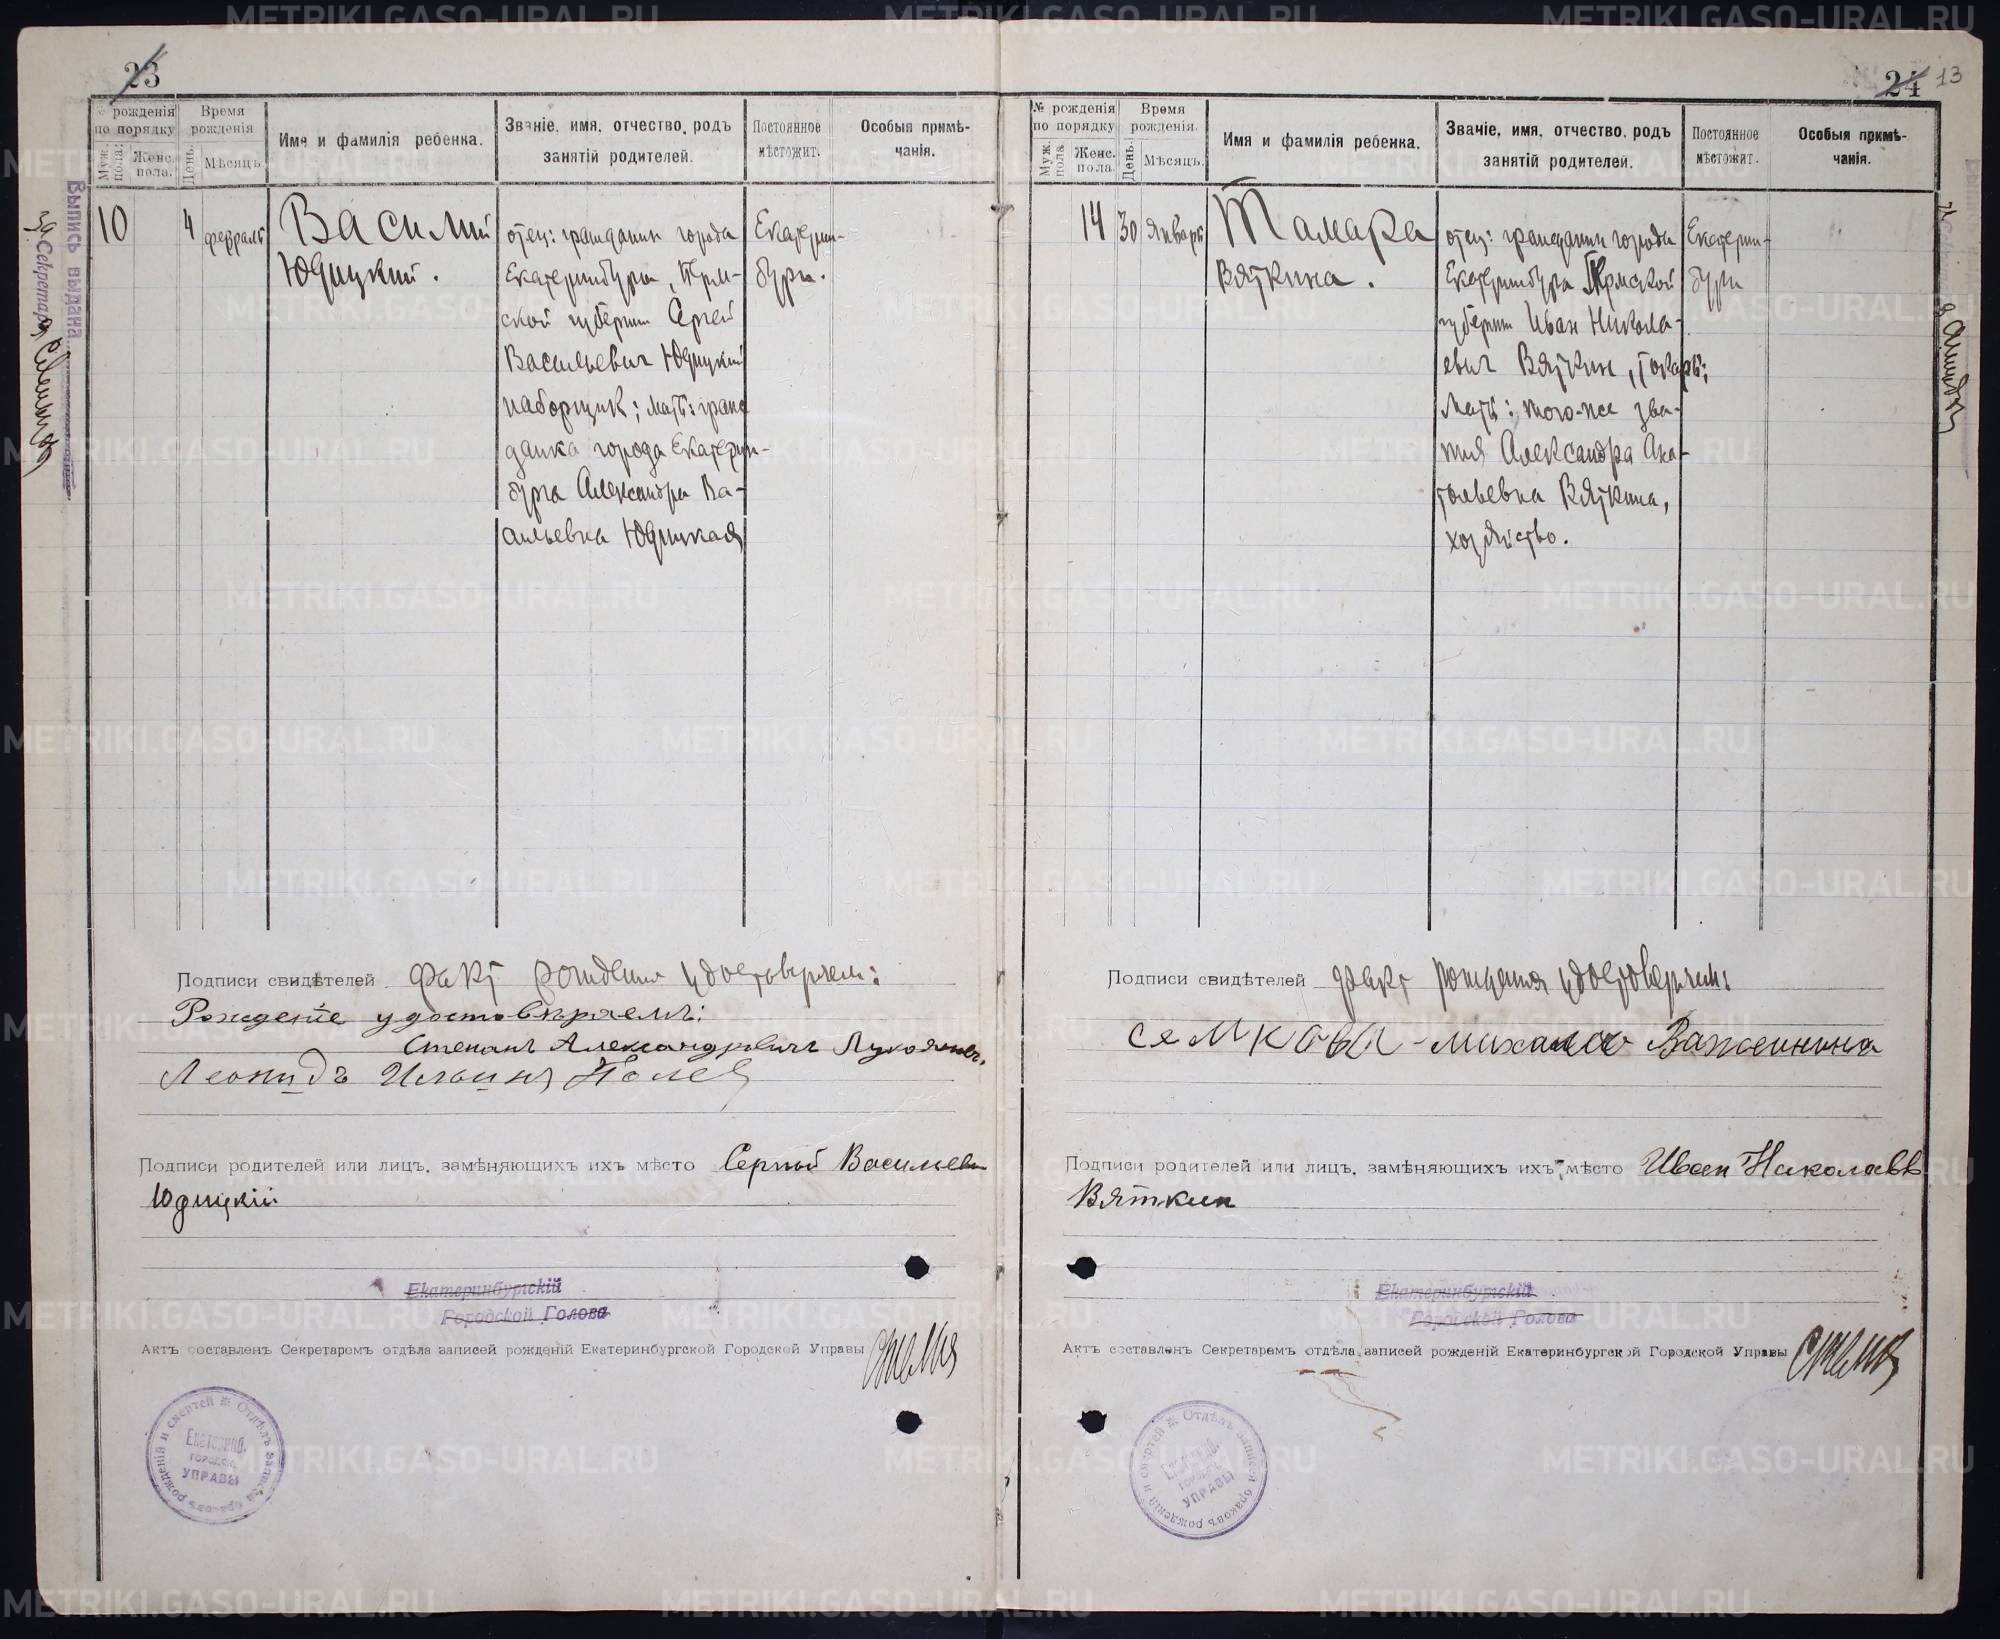 23
№ рожденія по порядку
Муж. пола.
Женс. пола.
Время рожденія
День.
Мѣсяцъ
Имя и фамилія ребенка.
Званіе, имя, отчество, родъ занятій родителей.
Постоянное мѣстожит.
Особыя примѣчанія.
10
4
февраль
Василий
Юдицкий.
отец: гражданин города
Екатеринбурга, Перм-
ской губернии Сергей
Васильевич Юдицкий
наборщик; мать: граж
данка города Екатерин-
бурга Александра Ва-
сильевна Юдицкая
Екатерин-
бург.
Выпись выдана
Секретарь
Подписи свидѣтелей факт рождения удостоверяем:
Рождение удостовѣряемъ:
Степанъ Александровичъ
Леонидъ Ильинъ
Подписи родителей или лицъ, замѣняющихъ ихъ мѣсто Сергей Васильев
Юдицкій
Екатеринбургскій
Городской Голова
Актъ составленъ Секретаремъ отдѣла записей рожденій Екатеринбургской Городской Управы
Отдѣлъ записей браковъ рожденій и смертей
Екатеринб.
городск.
УПРАВЫ
24 13
№ рожденія по порядку
Муж. пола
Женс. пола
Время рожденія.
День.
Мѣсяцъ.
Имя и фамилія ребенка.
Званіе, имя, отчество, родъ занятій родителей.
Постоянное мѣстожит.
Особыя примѣчанія.
14
30
январь
Тамара
Вяткина.
отец: гражданин города
Екатеринбурга Пермской
губернии Иван Никола-
евич Вяткин, токарь;
Мать: того-же зва-
ния Александра Ана-
тольевна Вяткина,
хозяйство.
Екатерин-
бург
Подписи свидѣтелей факт рождения удостоверяем:
Подписи родителей или лицъ, замѣняющихъ ихъ мѣсто Иван Николаев
Вяткин
Екатеринбургскій
Городской Голова
Актъ составленъ Секретаремъ отдѣла записей рожденій Екатеринбургской Городской Управы
Отдѣлъ записей браковъ рожденій и смертей
Екатеринб.
городск.
УПРАВЫ
METRIKI.GASO-URAL.RU